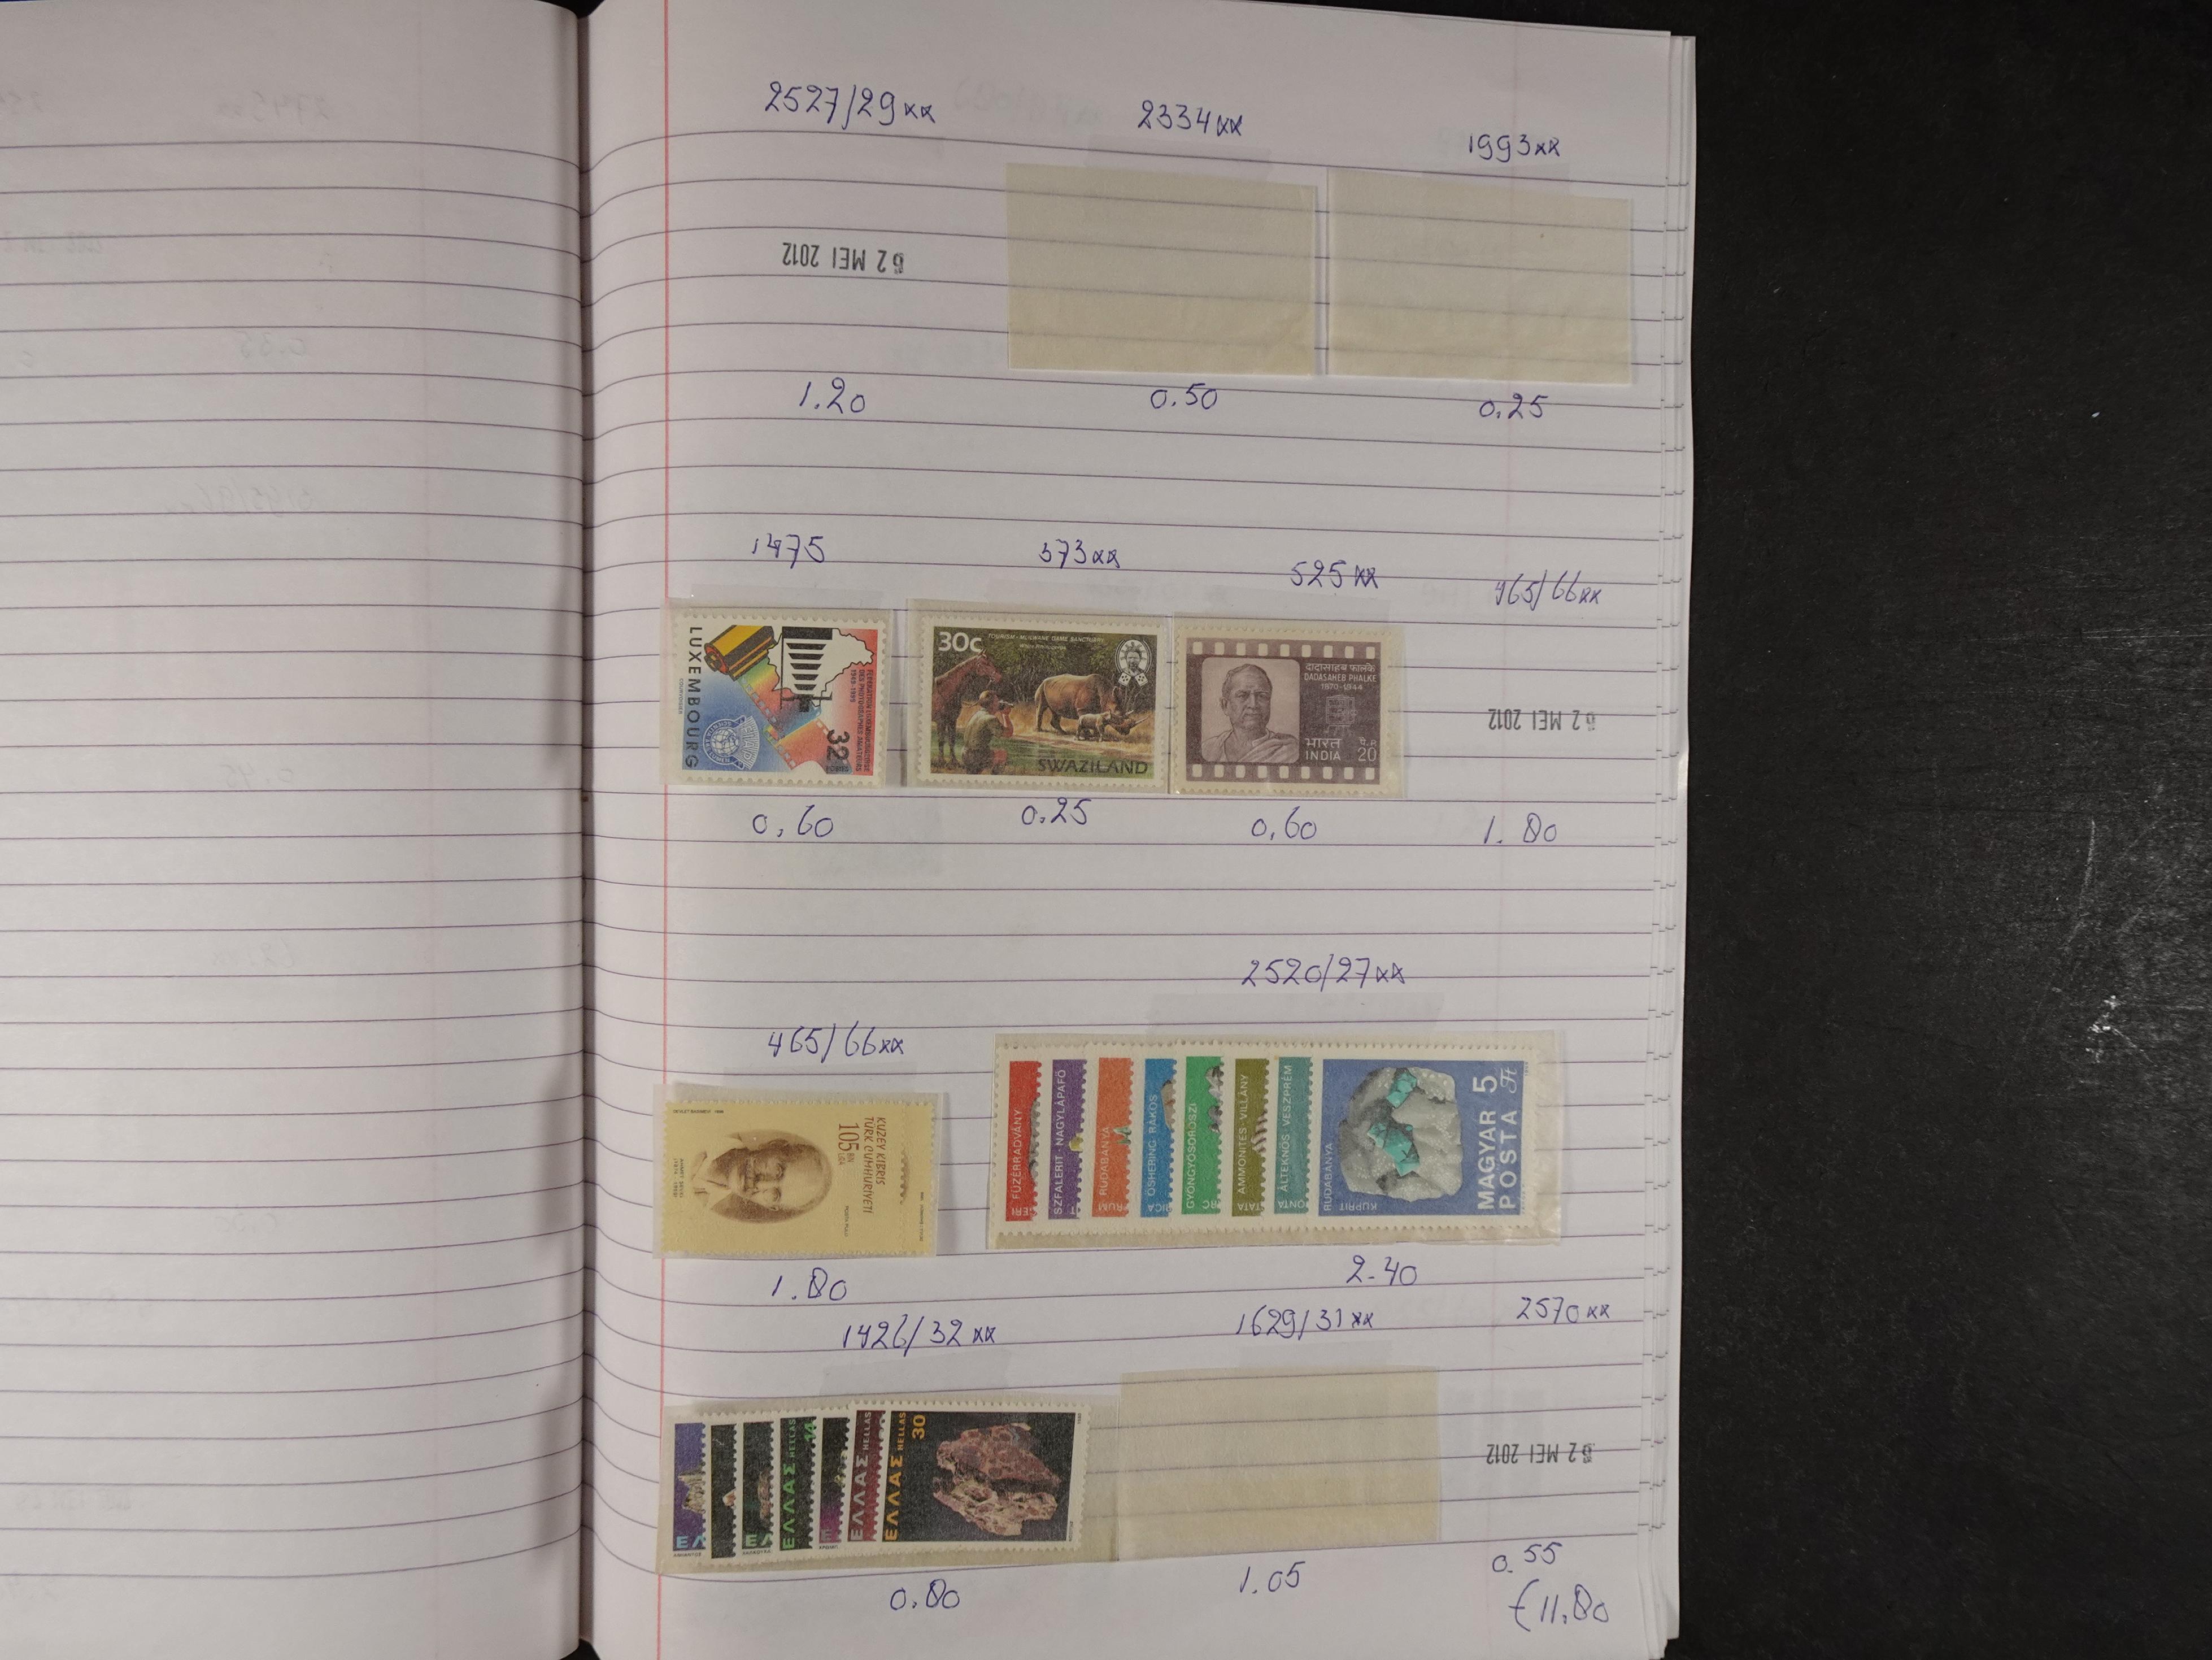 2527/29xx
2334xx
1993xx
02 MEI 2012
1.20
0.50
0.25
1475
373xx
525xx
465/66xx
LUXEMBOURG
COURVOISIER
FEDERATION LUXEMBOURGEOISE
DES PHOTOGRAPHES AMATEURS
1949-1999
32
30c
TOURISM - MLILWANE GAME SANCTUARY
SWAZILAND
दादासाहब फालके
DADASAHEB PHALKE
1870-1944
भारत
INDIA
20
02 MEI 2012
0.60
0.25
0.60
1.80
465/66xx
2520/27xx
KUZEY KIBRIS
TÜRK CUMHURİYETİ
105
FÜZÉRRADVÁNY
SZFALERIT · NAGYLÁPAFŐ
RUDABÁNYA
ŐSHERING RÁKOS
GYÖNGYÖSOROSZI
AMMONITES · VILLÁNY
ÁLTEKNŐS VESZPRÉM
RUDABÁNYA
KUPRIT
MAGYAR
POSTA
5 Ft
1.80
2.40
1426/32xx
1629/31xx
2570xx
ΕΛΛΑΣ HELLAS
14
ΕΛΛΑΣ HELLAS
ΕΛΛΑΣ HELLAS
30
02 MEI 2012
0.80
1.05
0.55
€11.80